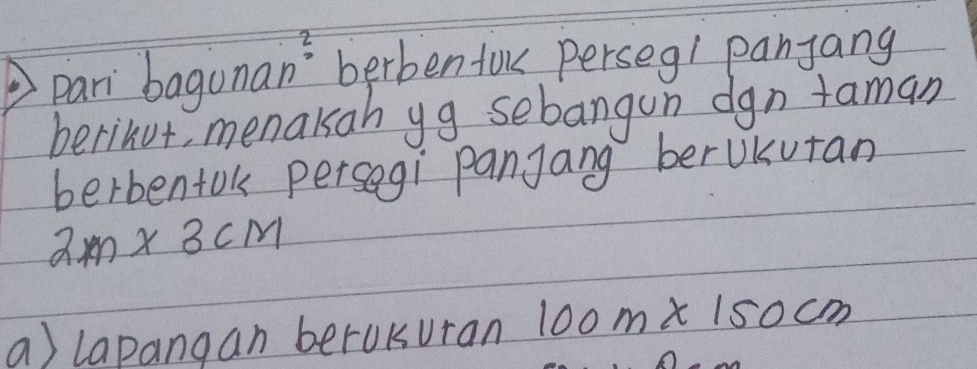 Dari bagunan² berbentuk persegi panjang
berikut, menakah yg sebangun dgn taman
berbentuk persegi panjang berukutan
2m x 3 cm
a) Lapangan berukuran 100 m x 150 cm